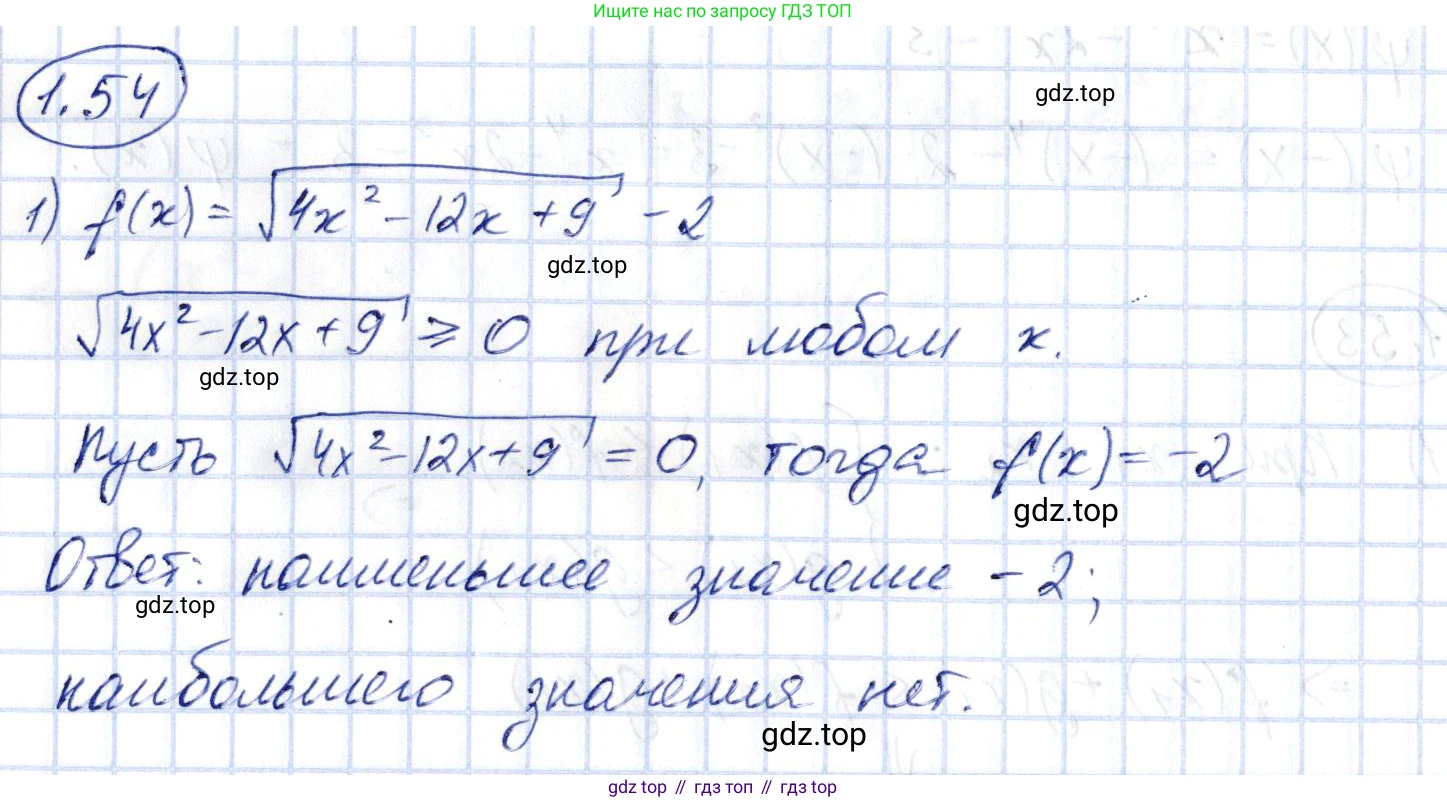 Ищите нас по запросу ГДЗ ТОП
1.54
gdz.top
1) f(x) = √(4x² - 12x + 9) - 2
gdz.top
√(4x² - 12x + 9) ⩾ 0 при любом x.
gdz.top
Пусть √(4x² - 12x + 9) = 0, тогда f(x) = -2
gdz.top
Ответ: наименьшее значение - 2;
gdz.top
наибольшего значения нет.
gdz.top
gdz top // гдз топ // gdz top